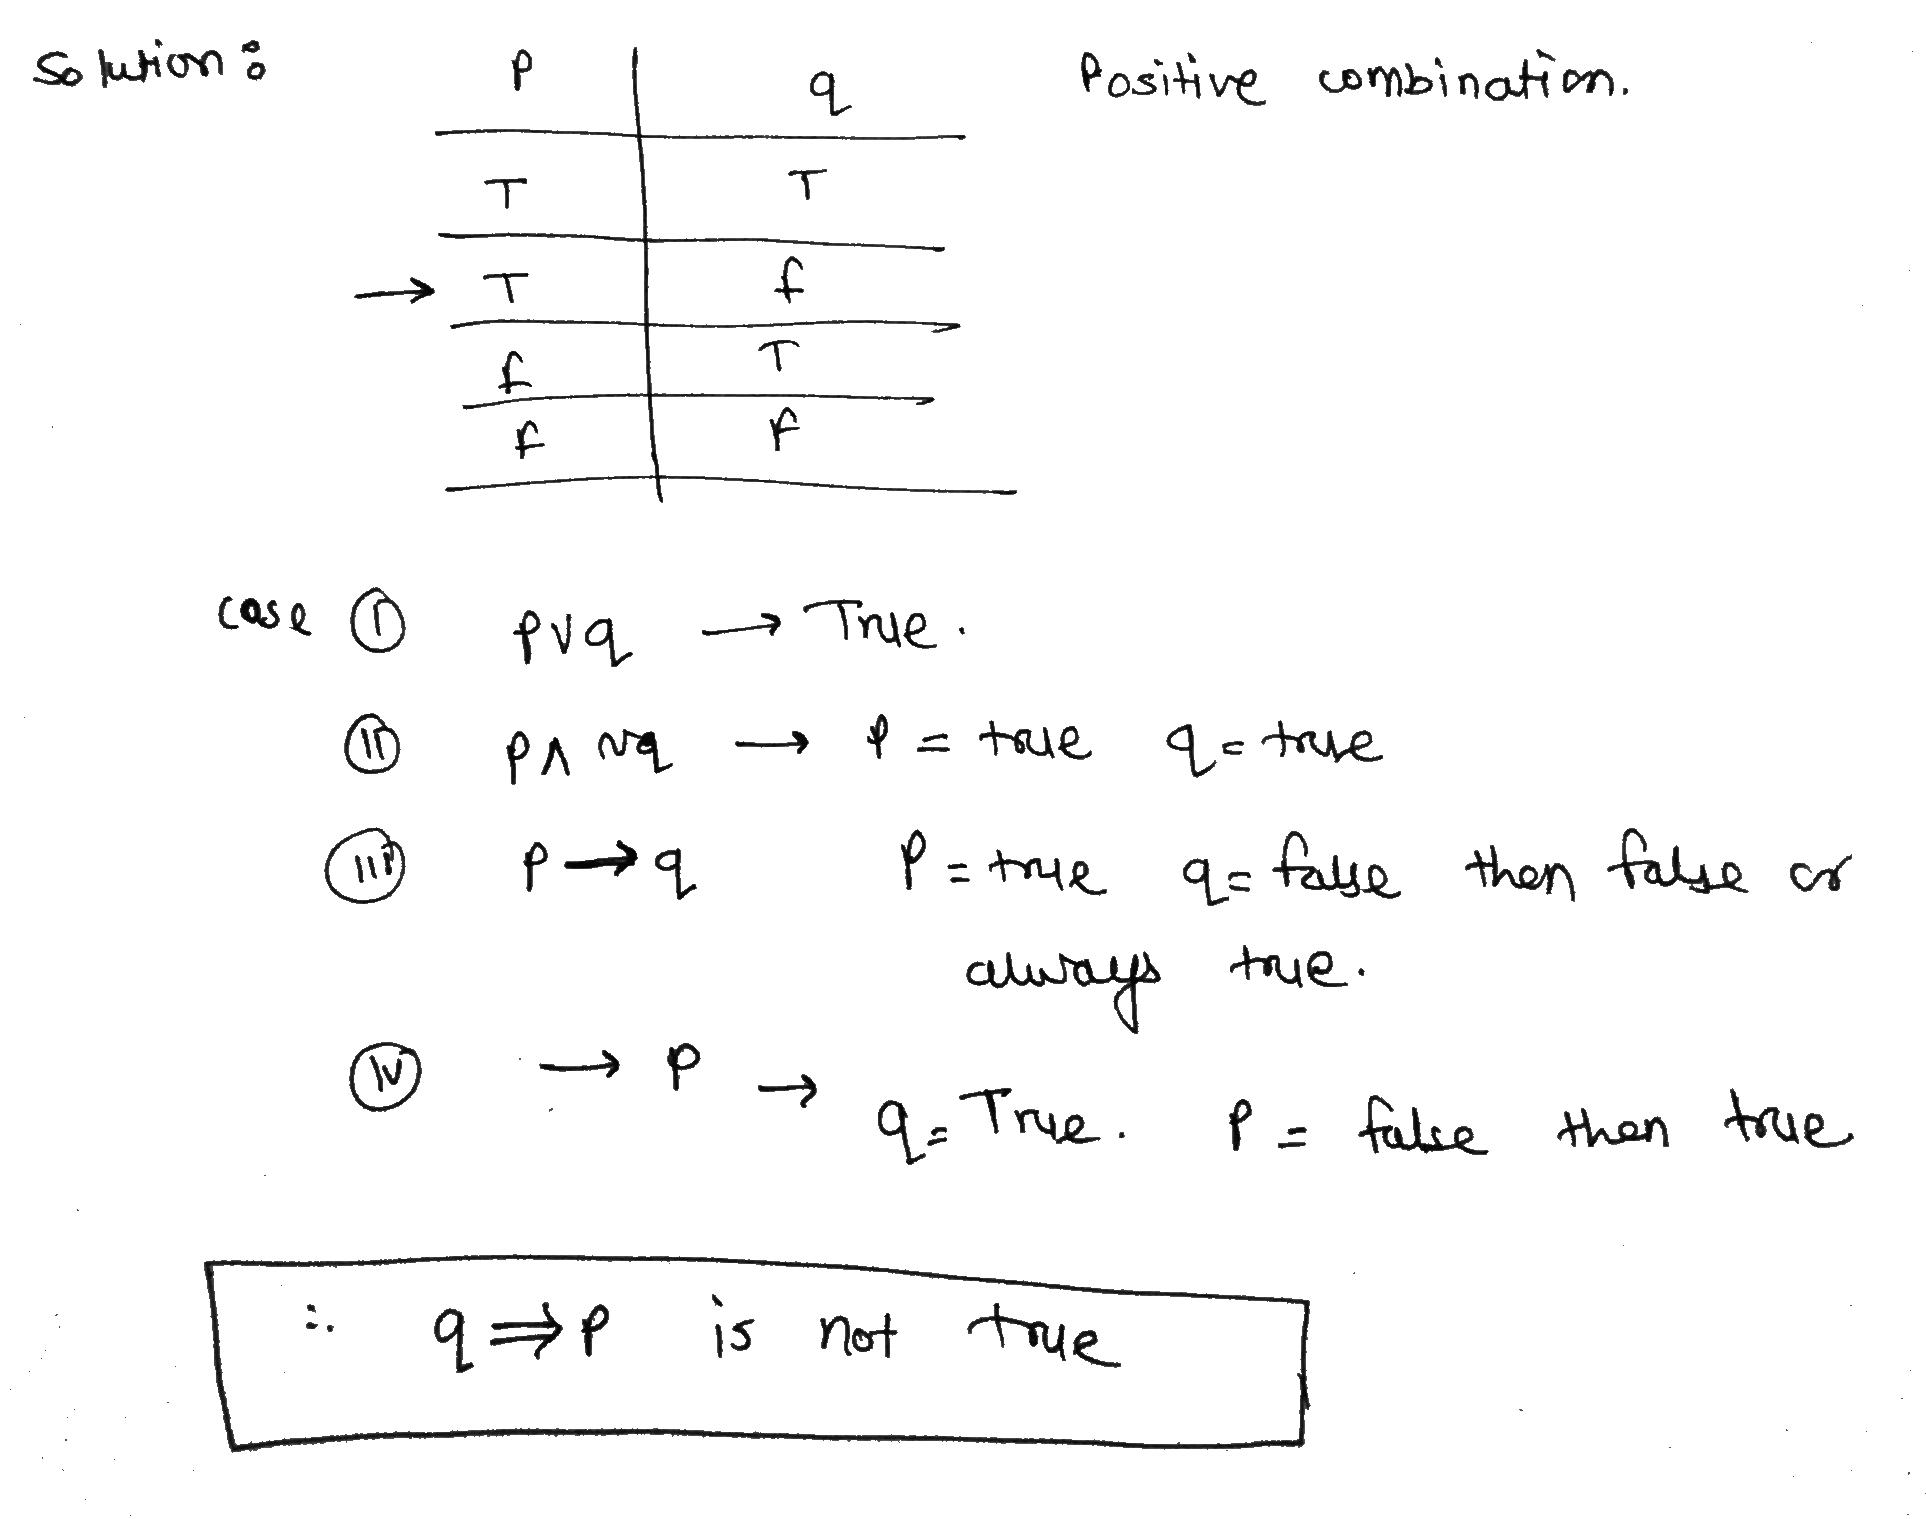 Solution: p | q Positive combination.
T | T
→ T | f
f | T
f | f
case (I) p∨q → True.
(II) p∧ ~q → P = true q = true
(III) P → q P = true q = false then false or
always true.
(IV) → P → q = True. P = false then true
∴ q ⇒ p is not true